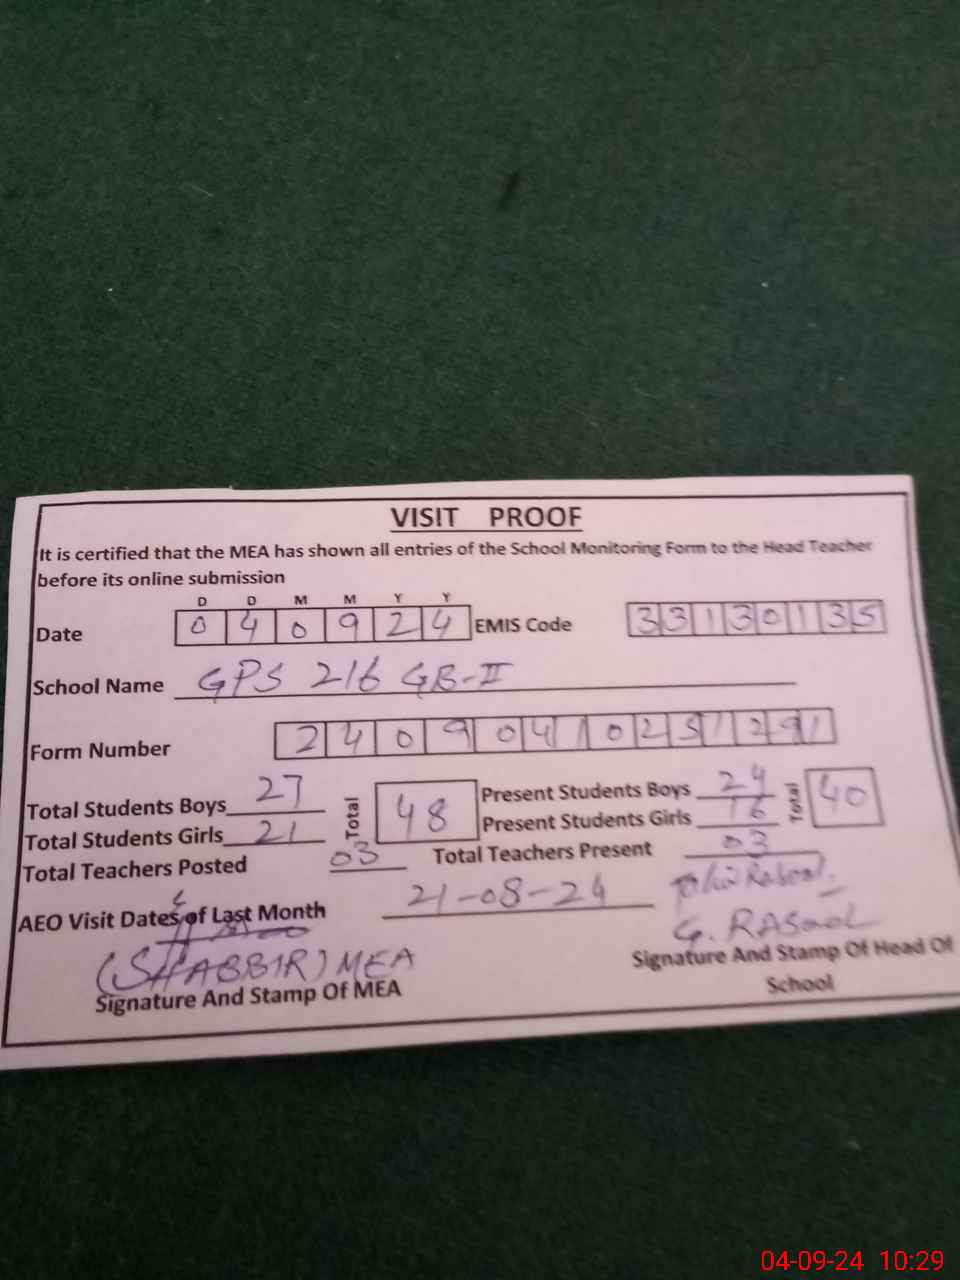 VISIT PROOF
It is certified that the MEA has shown all entries of the School Monitoring Form to the Head Teacher
before its online submission
D D M M Y Y
Date 0 4 0 9 2 4 EMIS Code 3 3 1 3 0 1 3 5
School Name GPS 216 GB-II
Form Number 2 4 0 9 0 4 1 0 2 5 1 2 9 1
Total Students Boys 27 Total 48 Present Students Boys 24 Total 40
Total Students Girls 21 Present Students Girls 16
Total Teachers Posted 03 Total Teachers Present 03
AEO Visit Dates of Last Month 21-08-24
G. RASOOL
(SHABBIR) MEA
Signature And Stamp Of MEA
Signature And Stamp Of Head Of
School
04-09-24 10:29